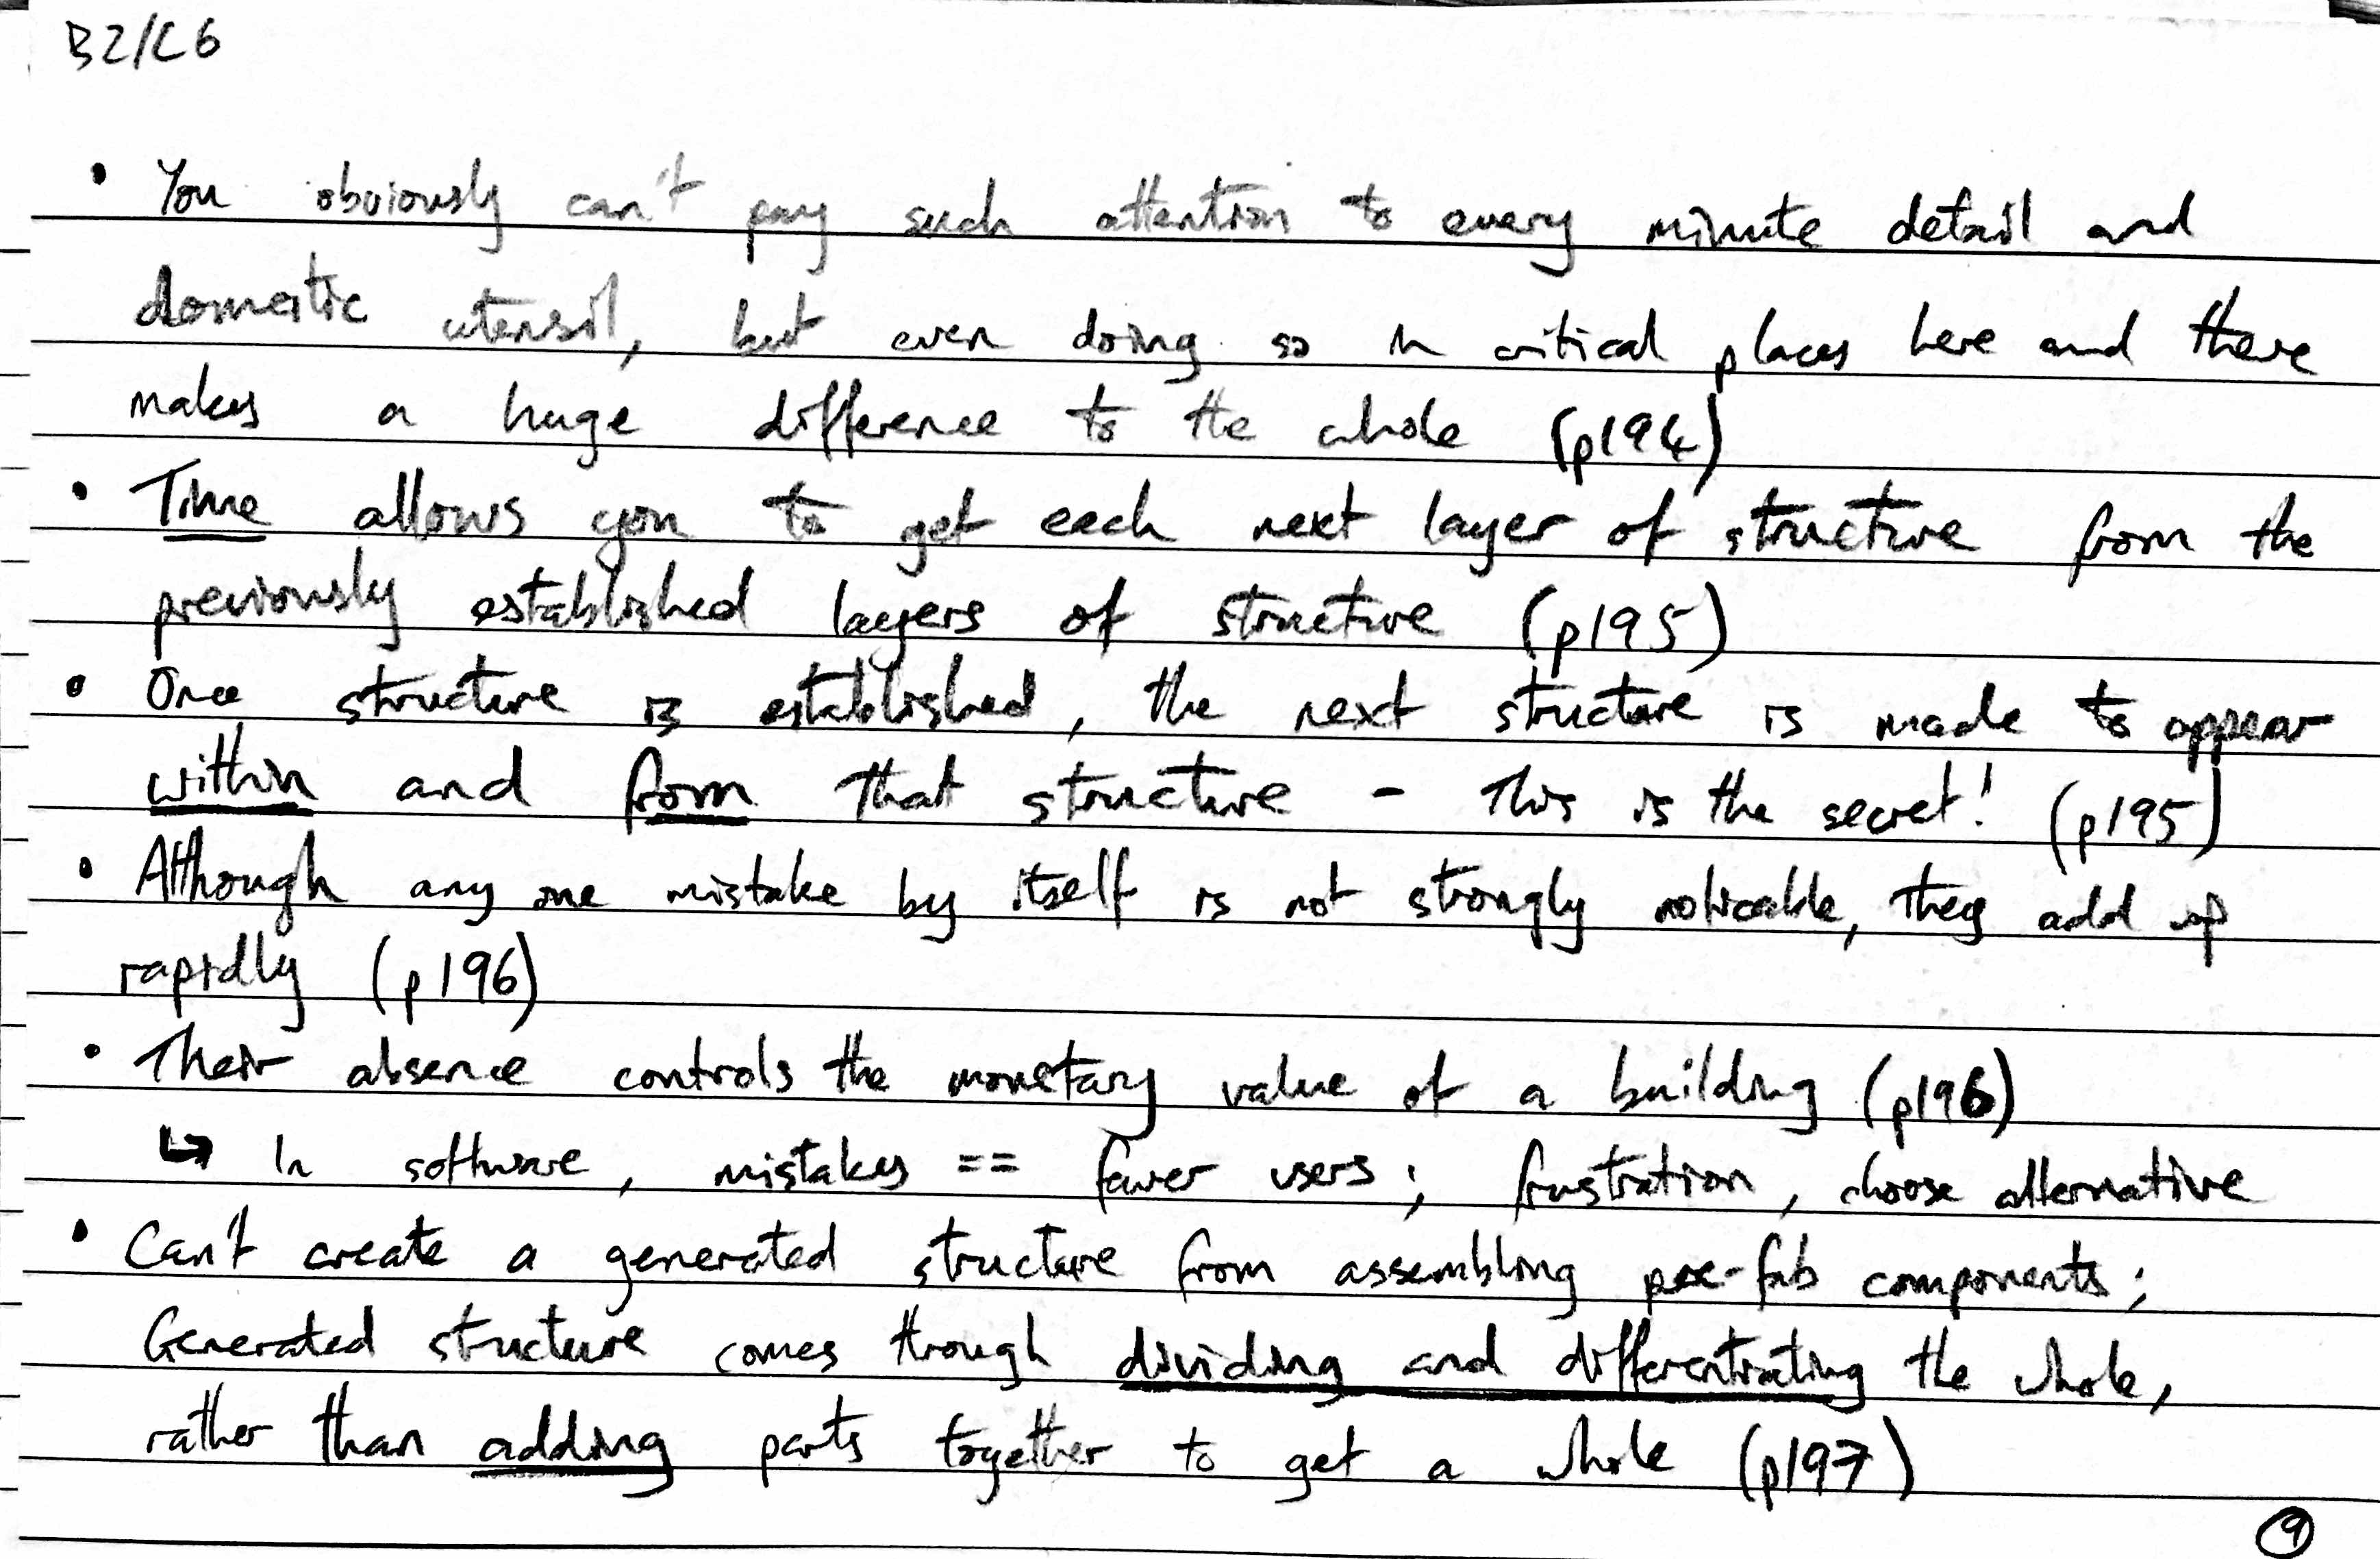 B2/C6
• You obviously can't pay such attention to every minute detail and
domestic utensil, but even doing so in critical places here and there
makes a huge difference to the whole (p194)
• Time allows you to get each next layer of structure from the
previously established layers of structure (p195)
• Once structure is established, the next structure is made to appear
within and from that structure - This is the secret! (p195)
• Although any one mistake by itself is not strongly noticable, they add up
rapidly (p196)
• Their absence controls the monetary value of a building (p196)
↳ In software, mistakes == fewer users; frustration, choose alternative
• Can't create a generated structure from assembling pre-fab components;
Generated structure comes through dividing and differentiating the whole,
rather than adding parts together to get a whole (p197)
9